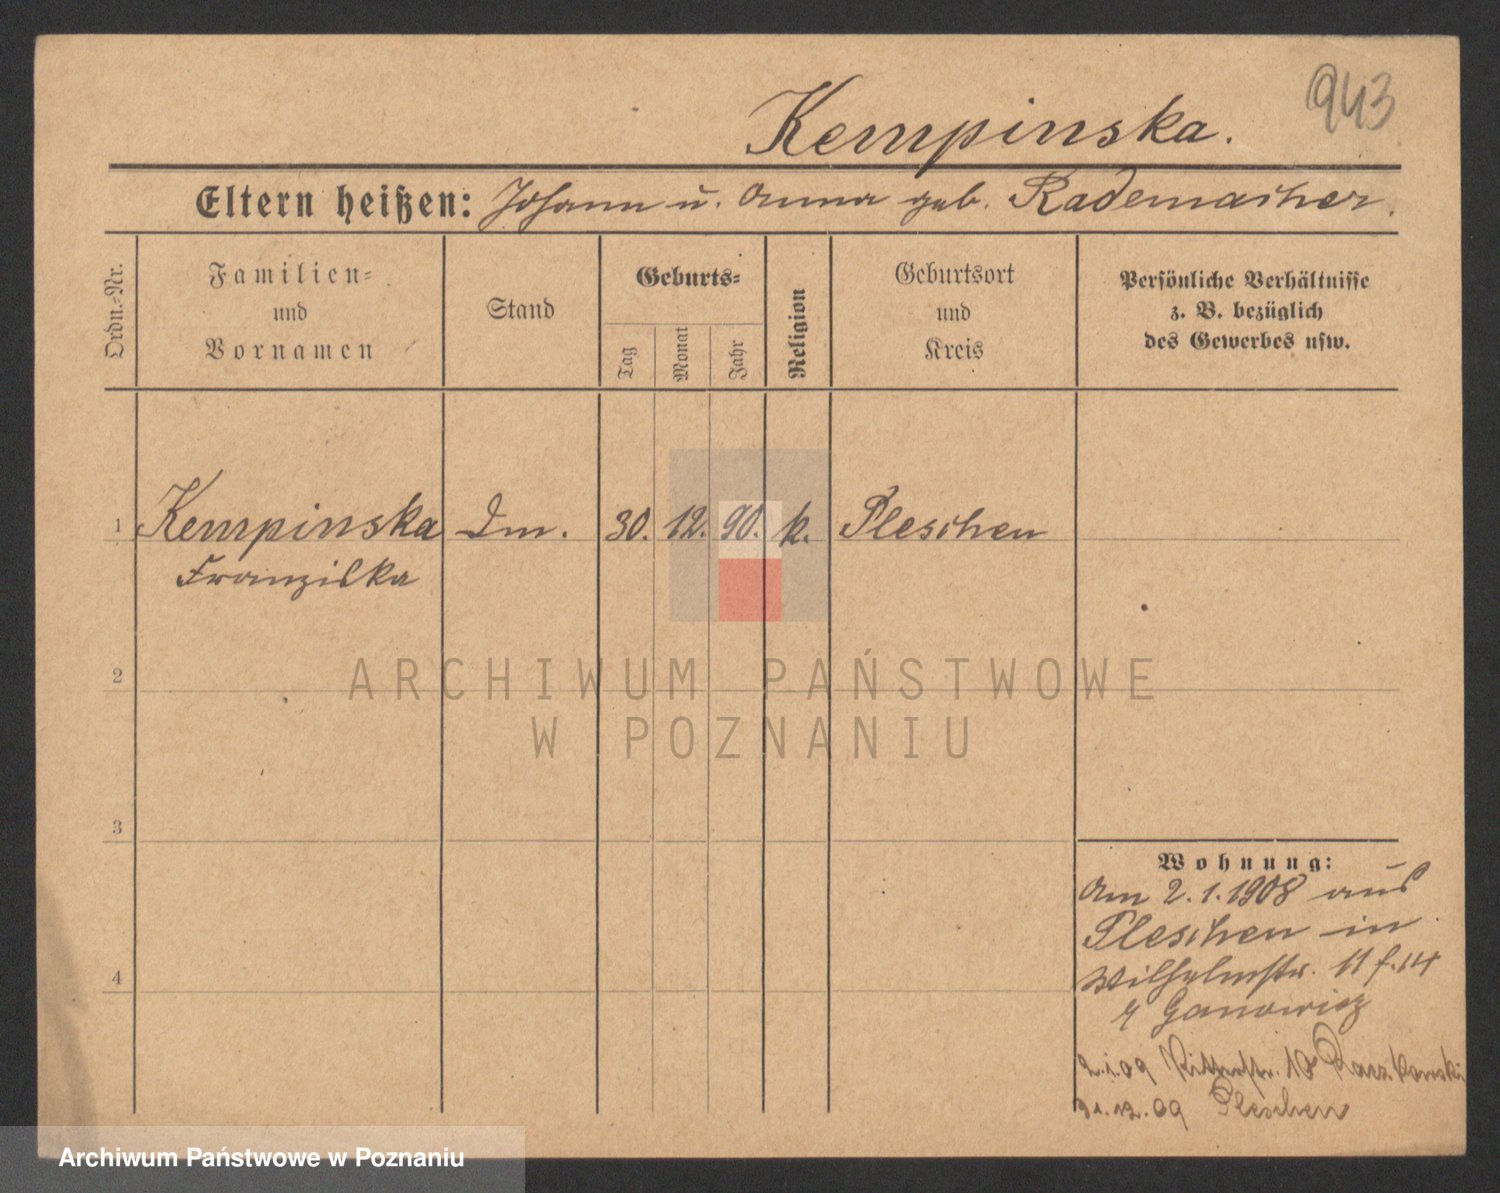 943
Kempinska.
Eltern heißen: Johann u. Anna geb. Rademacher.
Ordn.-Nr.
Familien-
und
Vornamen
Stand
Geburts-
Tag
Monat
Jahr
Religion
Geburtsort
und
Kreis
Persönliche Verhältnisse
z. B. bezüglich
des Gewerbes usw.
1 Kempinska Dm. 30. 12. 90. k. Pleschen
Franziska
2
ARCHIWUM PAŃSTWOWE
W POZNANIU
3
Wohnung:
Am 2.1.1908 aus
Pleschen in
Wilhelmstr. 11
Ganowicz
4
2.1.09 Ritterstr. 10
31.12.09 Pleschen
Archiwum Państwowe w Poznaniu